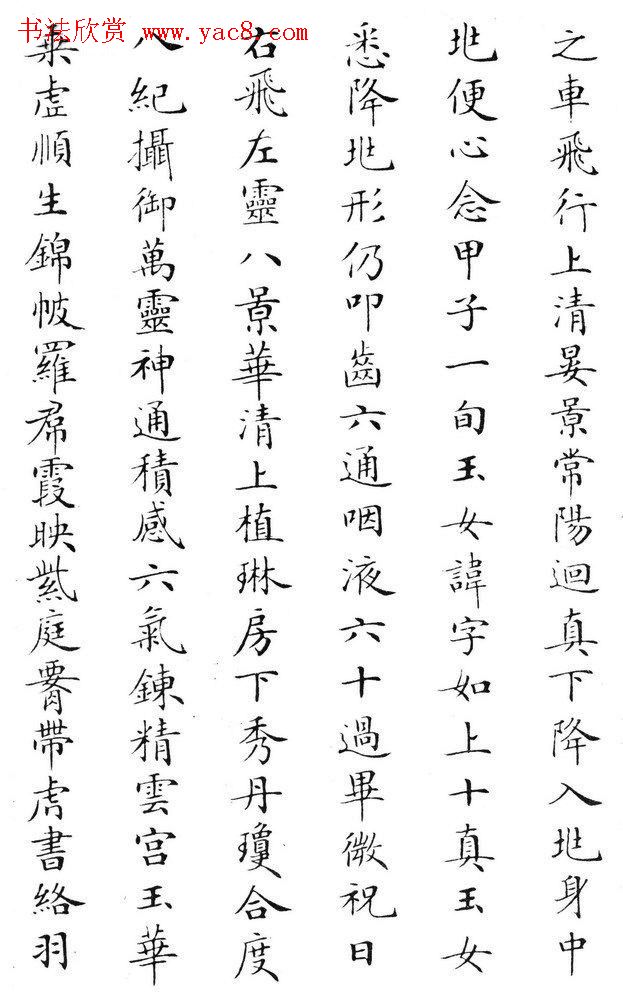 书法欣赏 www.yac8.com
之車飛行上清晏景常陽迴真下降入兆身中
兆便心念甲子一旬玉女諱字如上十真玉女
悉降兆形仍叩齒六通咽液六十過畢微祝曰
右飛左靈八景華清上植琳房下秀丹瓊合度
八紀攝御萬靈神通積感六氣鍊精雲宮玉華
乘虛順生錦帔羅帬霞映紫庭腰帶虎書絡羽